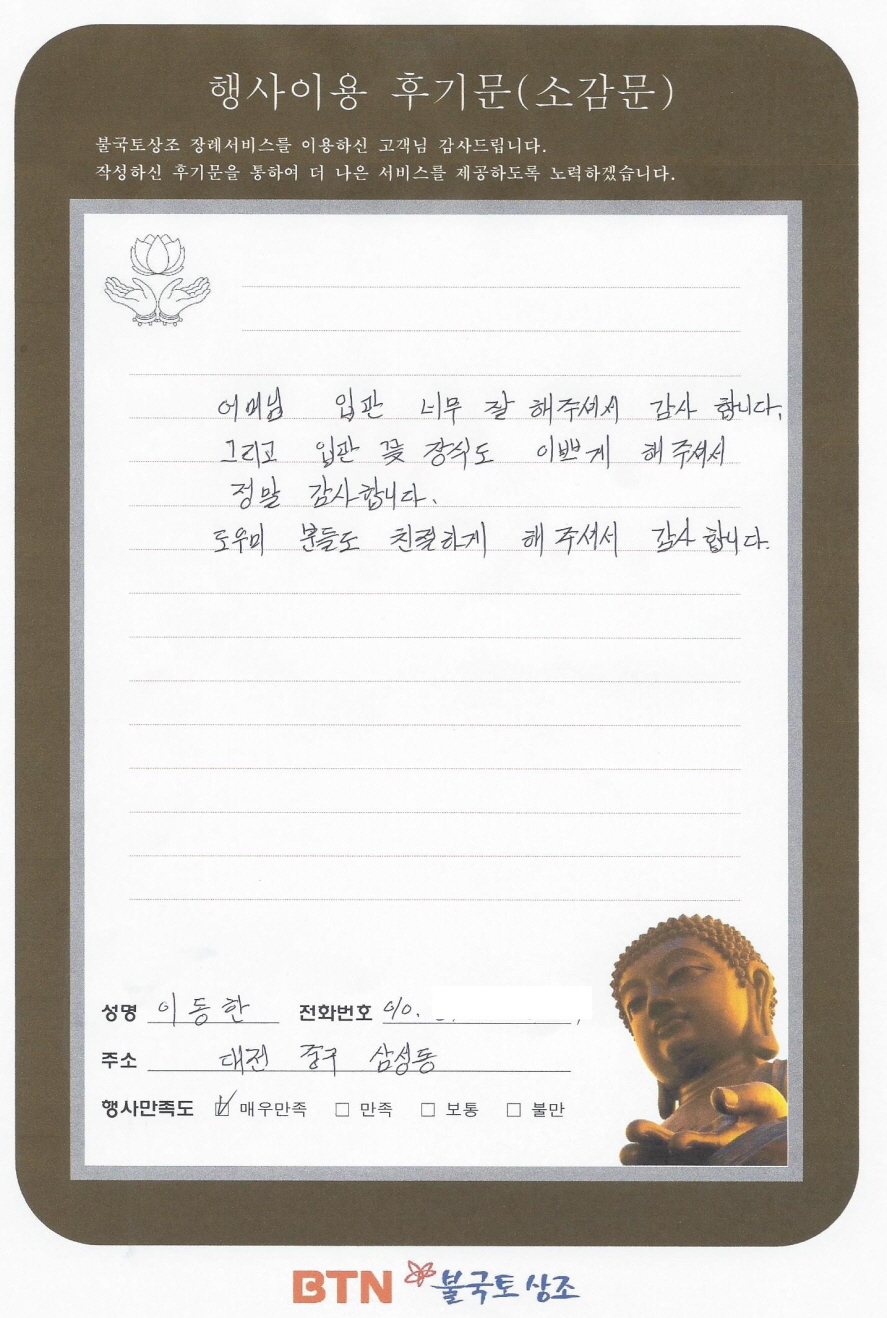 행사이용 후기문(소감문)
불국토상조 장례서비스를 이용하신 고객님 감사드립니다.
작성하신 후기문을 통하여 더 나은 서비스를 제공하도록 노력하겠습니다.
어머님 입판 너무 잘 해주셔서 감사 합니다.
그리고 입판 꽃 장식도 이쁘게 해주셔서
정말 감사합니다.
도우미 분들도 친절하게 해 주셔서 감사합니다.
성명 이동한 전화번호 010.
주소 대전 중구 삼성동
행사만족도 ☑ 매우만족 □ 만족 □ 보통 □ 불만
BTN 불국토상조